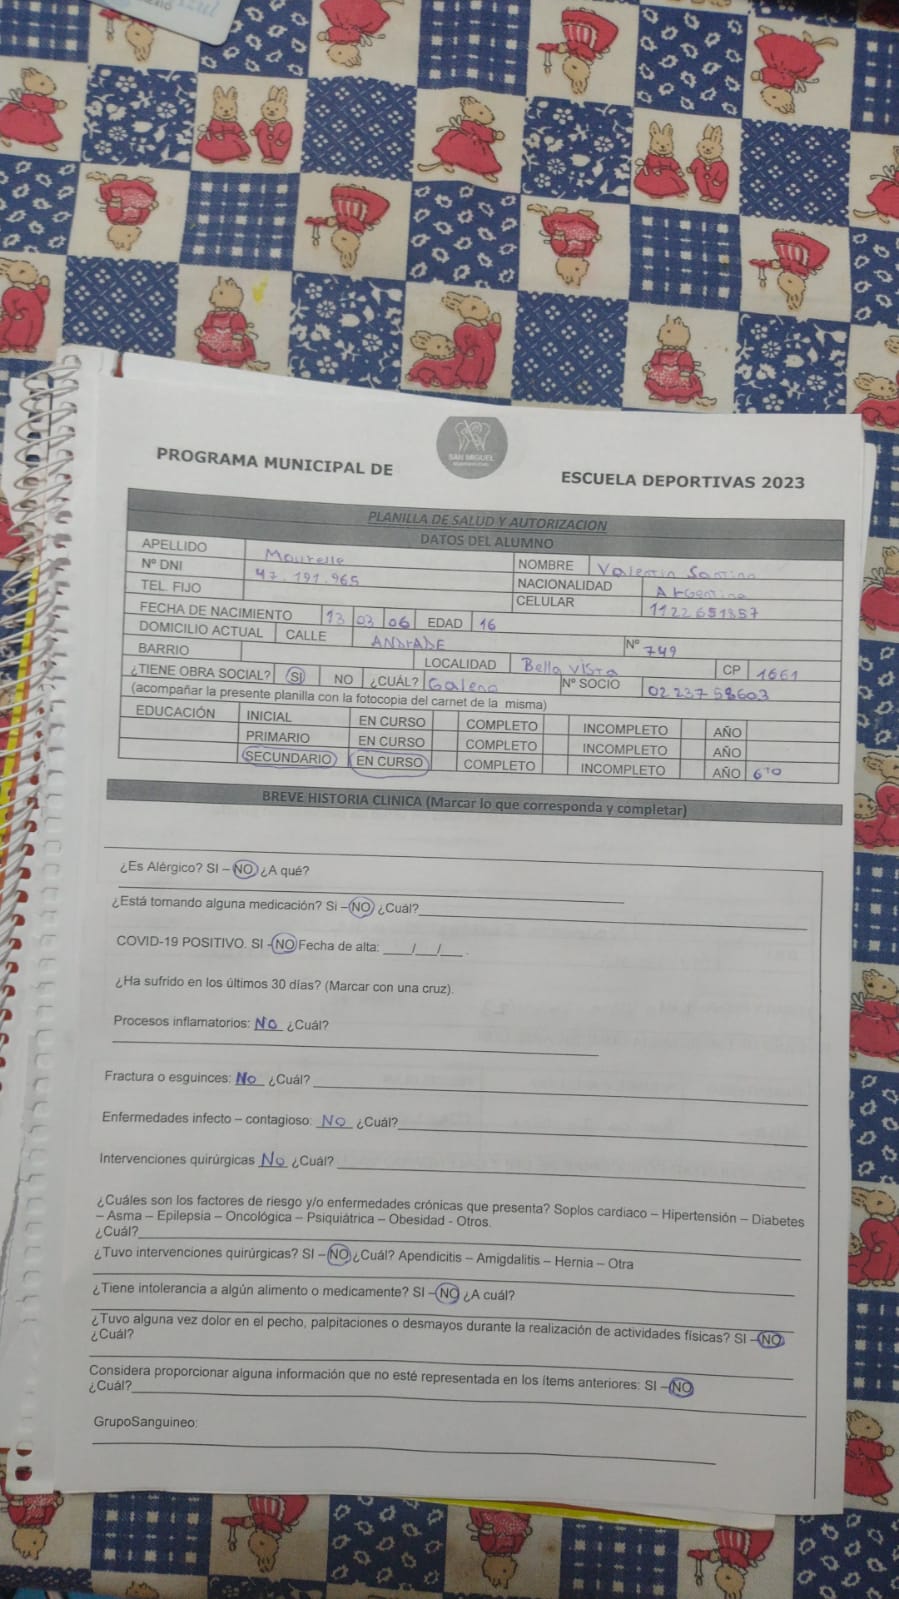 azul
SAN MIGUEL
PROGRAMA MUNICIPAL DE ESCUELA DEPORTIVAS 2023
PLANILLA DE SALUD Y AUTORIZACION
DATOS DEL ALUMNO
APELLIDO Mourelle NOMBRE Valentin Santino
Nº DNI 47.191.965 NACIONALIDAD Argentina
TEL. FIJO CELULAR 1122651357
FECHA DE NACIMIENTO 13 03 06 EDAD 16
DOMICILIO ACTUAL CALLE ANDrADE Nº 749
BARRIO LOCALIDAD Bella Vista CP 1661
¿TIENE OBRA SOCIAL? SI NO ¿CUÁL? Galeno Nº SOCIO 0223758603
(acompañar la presente planilla con la fotocopia del carnet de la misma)
EDUCACIÓN INICIAL EN CURSO COMPLETO INCOMPLETO AÑO
PRIMARIO EN CURSO COMPLETO INCOMPLETO AÑO
SECUNDARIO EN CURSO COMPLETO INCOMPLETO AÑO 6to
BREVE HISTORIA CLINICA (Marcar lo que corresponda y completar)
¿Es Alérgico? SI – NO ¿A qué?
¿Está tomando alguna medicación? Si – NO ¿Cuál?
COVID-19 POSITIVO. SI - NO Fecha de alta: ____/___/___ .
¿Ha sufrido en los últimos 30 días? (Marcar con una cruz).
Procesos inflamatorios: No ¿Cuál?
Fractura o esguinces: No ¿Cuál?
Enfermedades infecto – contagioso: No ¿Cuál?
Intervenciones quirúrgicas No ¿Cuál?
¿Cuáles son los factores de riesgo y/o enfermedades crónicas que presenta? Soplos cardiaco – Hipertensión – Diabetes
– Asma – Epilepsia – Oncológica – Psiquiátrica – Obesidad - Otros.
¿Cuál?
¿Tuvo intervenciones quirúrgicas? SI – NO ¿Cuál? Apendicitis – Amigdalitis – Hernia – Otra
¿Tiene intolerancia a algún alimento o medicamente? SI – NO ¿A cuál?
¿Tuvo alguna vez dolor en el pecho, palpitaciones o desmayos durante la realización de actividades físicas? SI – NO
¿Cuál?
Considera proporcionar alguna información que no esté representada en los ítems anteriores: SI – NO
¿Cuál?
GrupoSanguineo: